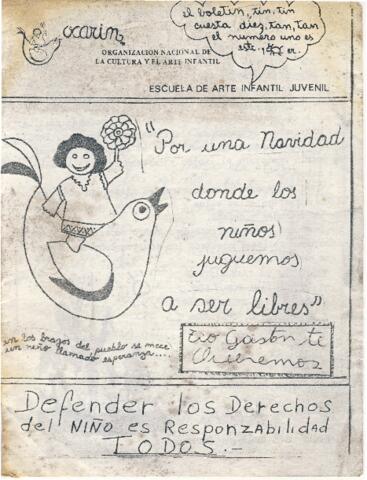 el boletín, tin, tin
cuesta diez, tan, tan
el numero uno es
este. 1 er.
ocarin
ORGANIZACION NACIONAL DE
LA CULTURA Y EL ARTE INFANTIL
ESCUELA DE ARTE INFANTIL JUVENIL
"Por una Navidad
donde los
niños
juguemos
a ser libres"
en los brazos del pueblo se mece
un niño llamado esperanza....
tio Gastón te
Queremos
Defender los Derechos
del NIÑO es Responzabilidad
TODOS.-